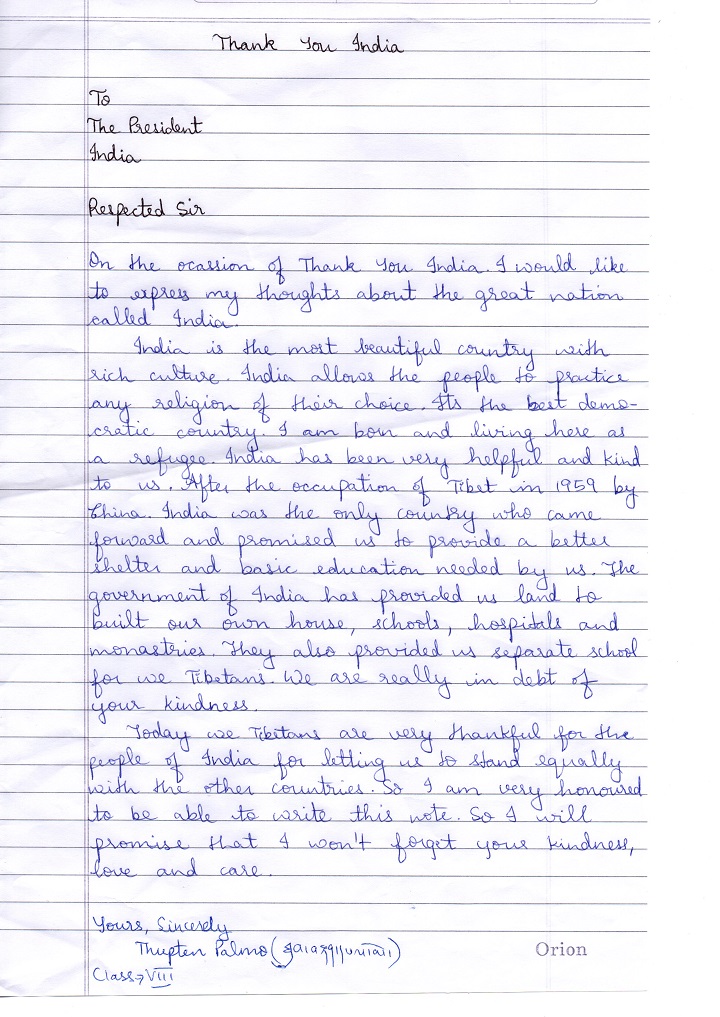 Thank You India
To
The President
India
Respected Sir
On the ocassion of Thank You India. I would like
to express my thoughts about the great nation
called India.
India is the most beautiful country with
rich culture. India allows the people to practice
any religion of their choice. Its the best demo-
cratic country. I am born and living here as
a refugee. India has been very helpful and kind
to us. After the occupation of Tibet in 1959 by
China. India was the only country who came
forward and promised us to provide a better
shelter and basic education needed by us. The
government of India has provided us land to
built our own house, schools, hospitals and
monastries. They also provided us separate school
for we Tibetans. We are really in debt of
your kindness.
Today we Tibetans are very thankful for the
people of India for letting us to stand equally
with the other countries. So I am very honoured
to be able to write this note. So I will
promise that I won't forget your kindness,
love and care.
Yours, Sincerely
Thupten Palmo
Orion
Class → VIII